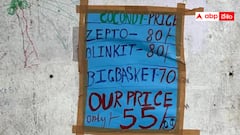 abp దేశం
COCONUT-PRICE
ZEPTO- 80/-
BLINKIT- 80/-
BIGBASKET-70
OUR PRICE
only 55/-